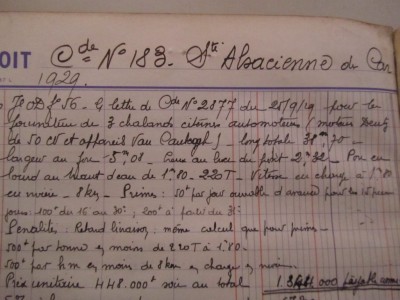 OIT Cde No 183. Sté Alsacienne de Con
1929.
G lettre de Cde No 2877 du 25/9/29 pour la
fourniture de 3 chalands citernes automoteurs (moteurs Deutz
de 50 CV et appareil Van ) longueur totale 38m,70
largeur au fort 5m,01 Creux au livet du pont 2m,32 Port en
lourd au tirant d'eau de 1m80 - 220T - Vitesse en charge à 1m80
en rivière - 8km - Primes : 50f par jour ouvrable d'avance pour les 15 premiers
jours : 100f du 16 au 30e ; 200f à partir du 31e
Pénalités : Retard livraison : même calcul que pour primes -
500f par tonne en moins de 220T à 1m80.
500f par hm en moins de 8km en charge en moins
Prix unitaire 448.000f soit au total 1.344.000